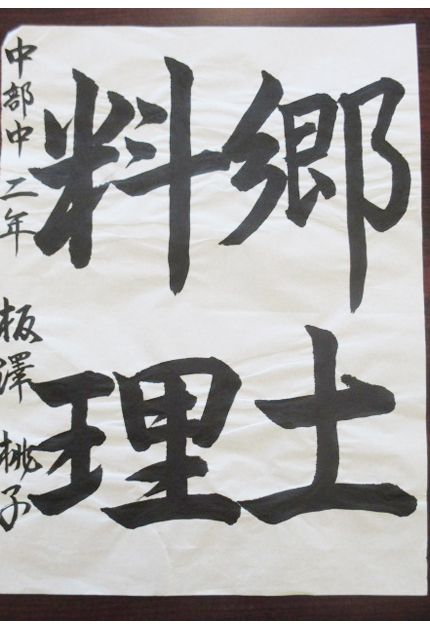 郷土
料理
中部中二年 板澤 桃子